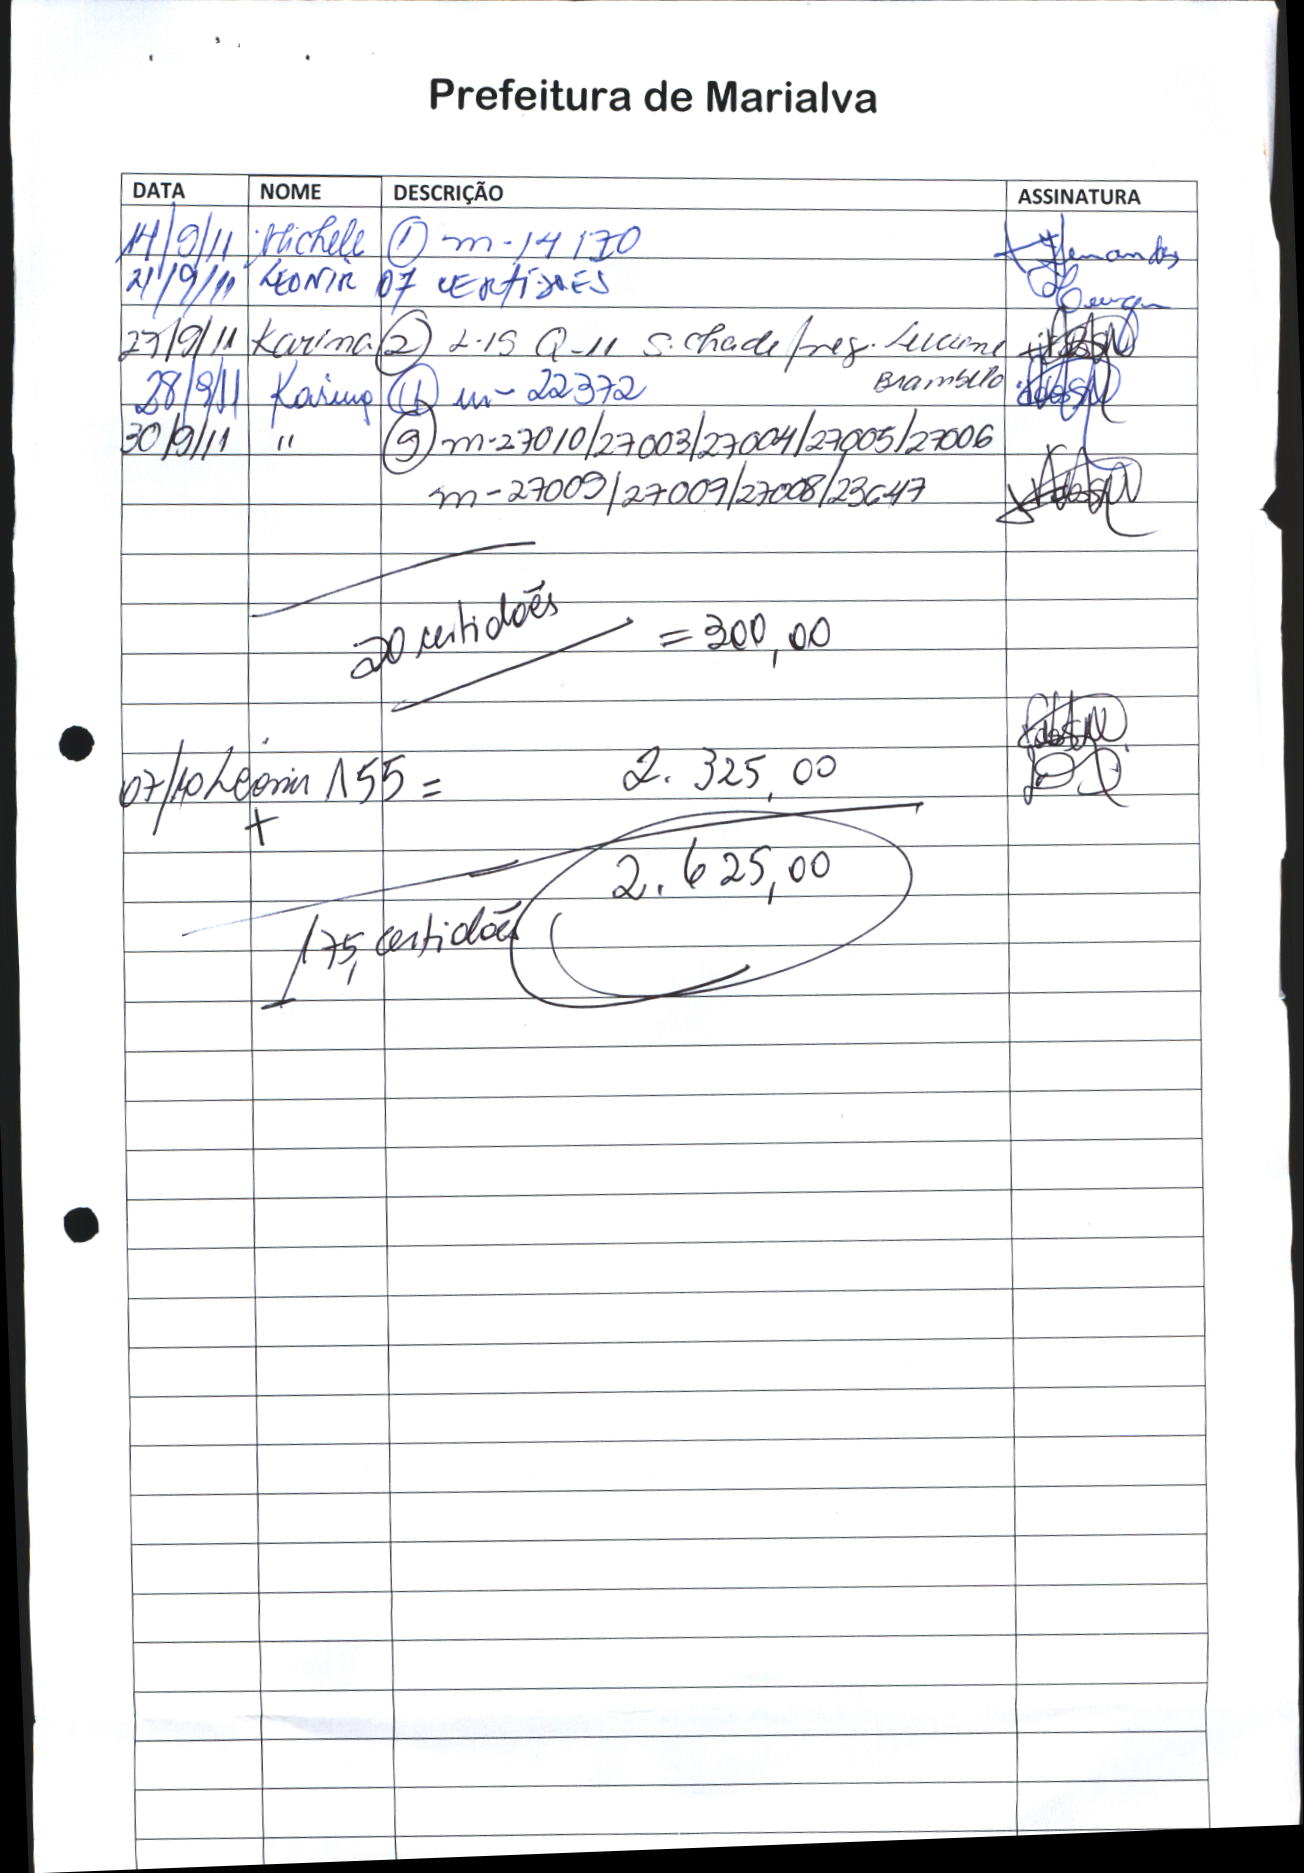 Prefeitura de Marialva
DATA NOME DESCRIÇÃO ASSINATURA
14/9/11 Michele ① m-14170 Fernandes
21/9/11 LEONIR 07 CERTIDÕES
27/9/11 Karina ② L-15 Q-11 S. Chade/reg. Luciene
Brambilla
28/9/11 Karina ① m-22372
30/9/11 " ⑨ m-27010/27003/27004/27005/27006
m-27009/27009/27008/23647
20 certidões = 300,00
07/10 Leonir 155 = 2.325,00
+
2.625,00
175, certidões